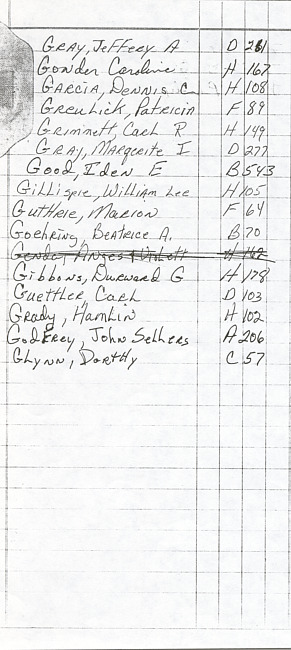 Gray, Jeffery A D 281
Gonder Caroline H 167
Garcia, Dennis C H 108
Greulick, Patricia F 89
Grimmett, Carl R H 149
Gray, Marquerite I D 277
Good, Iden E B 543
Gillispie, William Lee H 105
Guthrie, Marion F 64
Goehring, Beatrice A. B 70
H 142
Gibbons, Durward G H 178
Guettler, Carl D 103
Grady, Hamlin H 102
Godfrey, John Sellers A 206
Glynn, Dorthy C 57